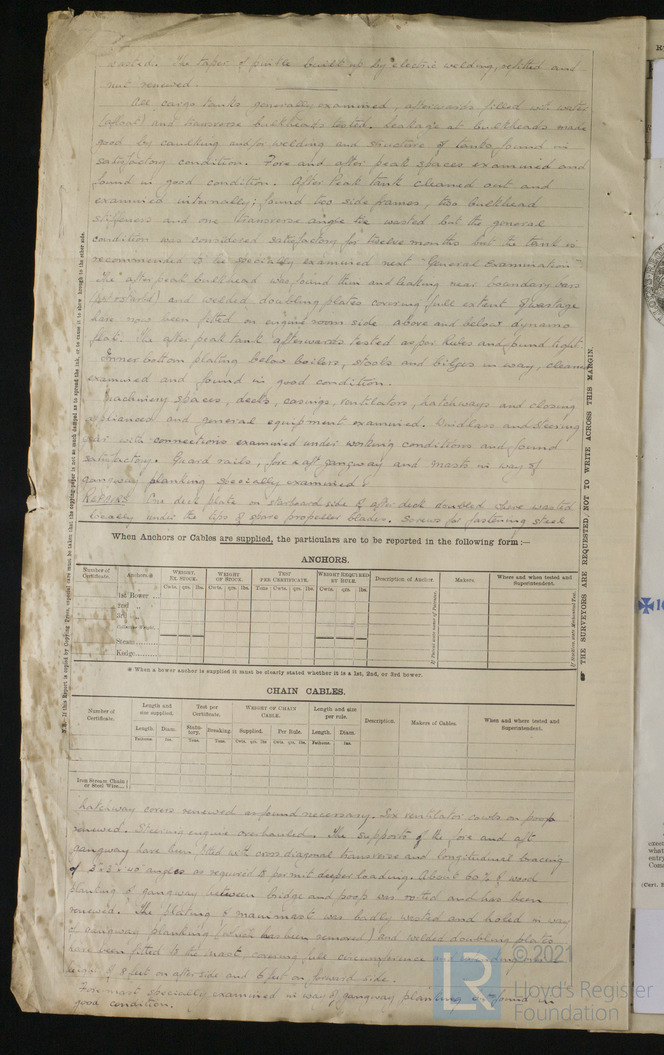 wasted. The taper of pintle built up by electric welding, refitted and
nut renewed.
All cargo tanks generally examined, afterwards filled with water
(afloat) and transverse bulkheads tested. Leakage at bulkheads made
good by caulking and/or welding and structure of tanks found in
satisfactory condition. Fore and after peak spaces examined and
found in good condition. After Peak tank cleaned out and
examined internally; found two side frames, two bulkhead
stiffeners and one transverse angle tie wasted but the general
condition was considered satisfactory for twelve months but the tank is
recommended to be specially examined next "General Examination"
The after peak bulkhead was found thin and leaking near boundary bars
and welded doubling plates covering full extent of wastage
have now been fitted on engine room side above and below dynamo
flat. The after peak tank afterwards tested as per Rules and found tight.
Inner bottom plating below boilers, stools and bilges in way, cleaned
examined and found in good condition.
Machinery spaces, decks, casings, ventilators, hatchways and closing
appliances and general equipment examined. Windlass and steering
gear with connections examined under working conditions and found
satisfactory. Guard rails, fore & aft gangway and masts in way of
gangway planking specially examined.
REPAIRS One deck plate on starboard side of after deck doubled where wasted
locally under the tips of spare propeller blades. Screws for fastening steel
When Anchors or Cables are supplied, the particulars are to be reported in the following form:—
ANCHORS.
Number of Certificate. Anchors.* WEIGHT, EX STOCK. WEIGHT OF STOCK. TEST PER CERTIFICATE. WEIGHT REQUIRED BY RULE. Description of Anchor. Makers. Where and when tested and Superintendent.
Cwts. qrs. lbs. Cwts. qrs. lbs. Tons Cwts. qrs. lbs. Cwts. qrs. lbs.
1st Bower ...
2nd
3rd
Stream
Kedge
* When a bower anchor is supplied it must be clearly stated whether it is a 1st, 2nd, or 3rd bower.
CHAIN CABLES.
Number of Certificate. Length and size supplied. Test per Certificate. WEIGHT OF CHAIN CABLE. Length and size per rule. Description. Makers of Cables. When and where tested and Superintendent.
Length. Diam. Statutory. Breaking. Supplied. Per Rule. Length. Diam.
Fathoms. Ins. Tons. Tons. Cwts. qrs. lbs. Cwts. qrs. lbs. Fathoms. Ins.
Iron Stream Chain
or Steel Wire...
hatchway covers renewed as found necessary. Six ventilator cowls on poop
renewed. Steering engine overhauled. The supports of the fore and aft
gangway have been fitted with cross diagonal transverse and longitudinal bracing
of 3 x 3 x 40 angles as required to permit deeper loading. About 60% of wood
planking of gangway between bridge and poop was rotted and has been
renewed. The plating of mainmast was badly wasted and holed in way
of gangway planking (which has been removed) and welded doubling plates
have been fitted to the mast, covering full circumference and extending
of 8 feet on afterside and 6 feet on forward side.
Foremast specially examined in way of gangway planking and found in
good condition.
THE SURVEYORS ARE REQUESTED NOT TO WRITE ACROSS THIS MARGIN.
© 2021
LR
Lloyd's Register
Foundation